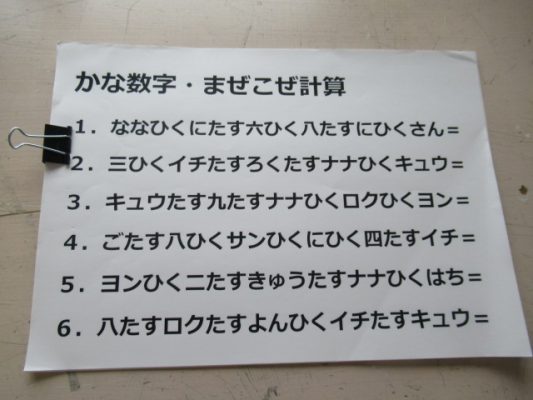 かな数字・まぜこぜ計算
1．ななひくにたす六ひく八たすにひくさん＝
2．三ひくイチたすろくたすナナひくキュウ＝
3．キュウたす九たすナナひくロクひくヨン＝
4．ごたす八ひくサンひくにひく四たすイチ＝
5．ヨンひく二たすきゅうたすナナひくはち＝
6．八たすロクたすよんひくイチたすキュウ＝